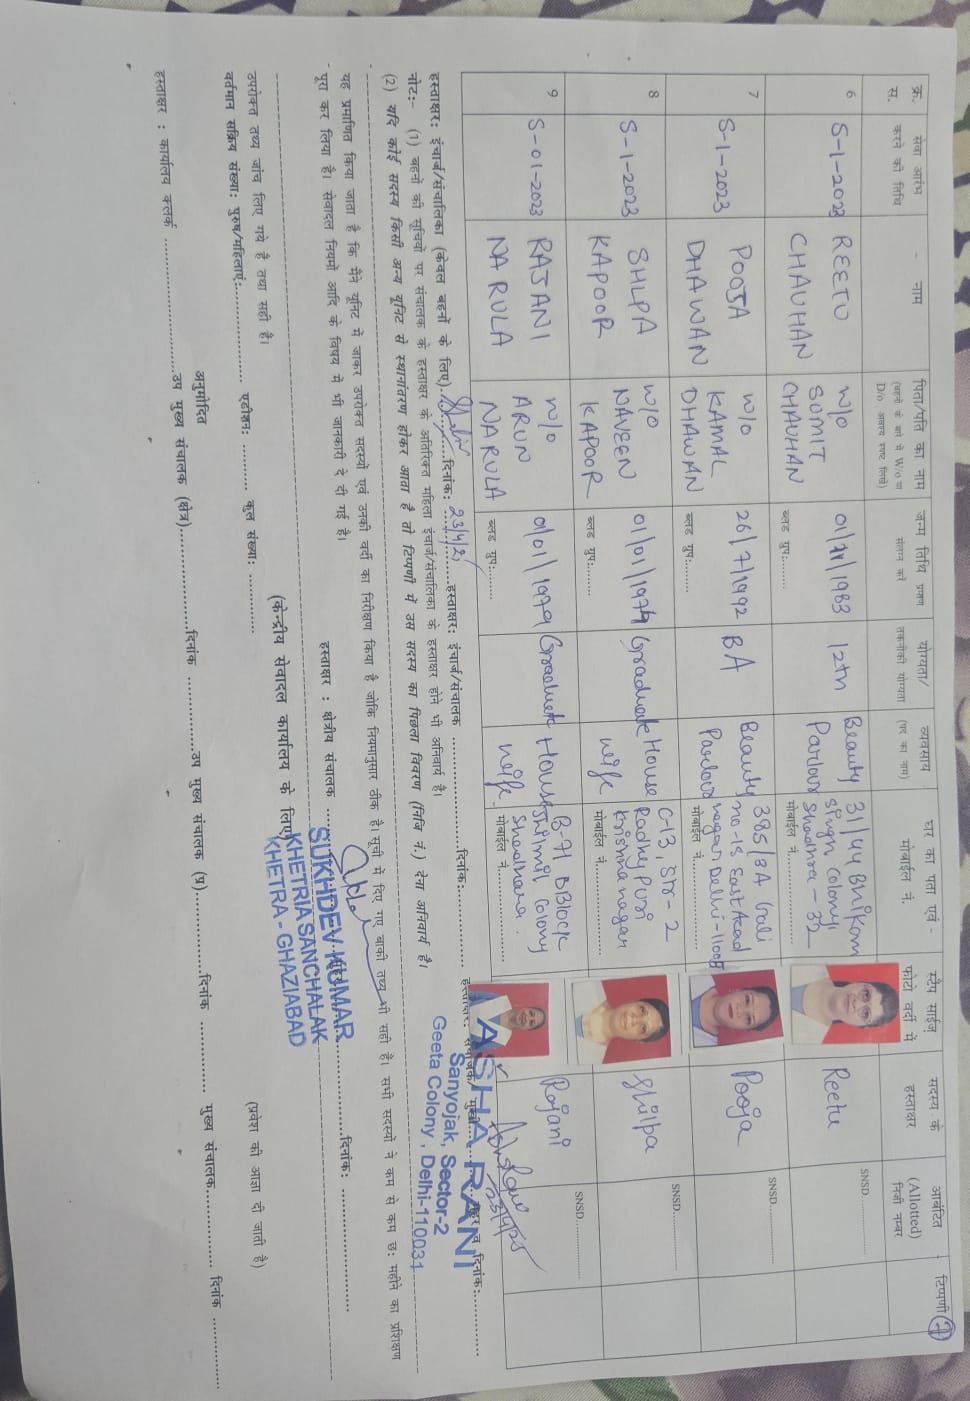 ②
क्र. स.
सेवा आरंभ करने की तिथि
नाम
पिता/पति का नाम
(बहनों के बारे में W/o या D/o अवश्य स्पष्ट लिखें)
जन्म तिथि प्रमाण
संलग्न करें
योग्यता/
तकनीकी योग्यता
व्यवसाय
(पद का नाम)
घर का पता एवं -
मोबाईल नं.
स्टैंप साईज़
फोटो वर्दी में
सदस्य के
हस्ताक्षर
आबंटित
(Allotted)
निजी नम्बर
टिप्पणी
6
5-1-2023
REETU
CHAUHAN
W/o
SUMIT
CHAUHAN
ब्लड ग्रुप:.......
12th
Beauty
Parlour
31/44 Bhikam
Singh Colony,
Shaadhra - 32
मोबाईल नं................
Reetu
SNSD..............
7
5-1-2023
POOJA
DHAWAN
W/o
KAMAL
DHAWAN
26/7/1992
ब्लड ग्रुप:.......
BA
Beauty
Parlour
395/3A Gali
no-15 East Azad
nagar Delhi-
मोबाईल नं................
Pooja
SNSD..............
8
5-1-2023
SHLPA
KAPOOR
W/o
NAVEEN
KAPOOR
01/01/1974
ब्लड ग्रुप:.......
Graduate
House
wife
C-13, Str-2
Radhey Puri
Krishna nagar
मोबाईल नं................
Shilpa
SNSD..............
9
5-01-2023
RAJANI
NARULA
W/o
ARUN
NARULA
01/01/1979
ब्लड ग्रुप:.......
Graduate
House
wife
B-71 B Block
Jhilmil Colony
Shaadhara.
मोबाईल नं................
Rajani
SNSD..............
हस्ताक्षर: इंचार्ज/संचालिका (केवल बहनों के लिए)..........दिनांक: ..........हस्ताक्षर: इंचार्ज/संचालक ....................दिनांक:................
ASHA RANI
Sanyojak, Sector-2
Geeta Colony, Delhi-110031
नोट:- (1) बहनों की सूचियों पर संचालक के हस्ताक्षर के अतिरिक्त महिला इंचार्ज/संचालिका के हस्ताक्षर होने भी अनिवार्य है।
(2) यदि कोई सदस्य किसी अन्य यूनिट से स्थानांतरण होकर आता है तो टिप्पणी में उस सदस्य का पिछला विवरण (निजि नं.) देना अनिवार्य है।
यह प्रमाणित किया जाता है कि मैंने यूनिट में जाकर उपरोक्त सदस्यों एवं उनकी वर्दी का निरीक्षण किया है जोकि नियमानुसार ठीक है। सूची में दिए गए बाकी तथ्य भी सही है। सभी सदस्यों ने कम से कम छः महीने का प्रशिक्षण
पूरा कर लिया है। सेवादल नियमों आदि के विषय में भी जानकारी दे दी गई है।
हस्ताक्षर : क्षेत्रीय संचालक ....................दिनांक: ......................
SUKHDEV KUMAR
KHETRIA SANCHALAK
KHETRA - GHAZIABAD
(केन्द्रीय सेवादल कार्यालय के लिए)
उपरोक्त तथ्य जांच लिए गये है तथा सही है।
(प्रवेश की आज्ञा दी जाती है)
वर्तमान सक्रिय संख्या: पुरुष/महिलाएं:.................. एडीशन: .......... कुल संख्या: ............
अनुमोदित
हस्ताक्षर : कार्यालय क्लर्क ........................उप मुख्य संचालक (क्षेत्र)..................दिनांक ..............उप मुख्य संचालक (प्र)................दिनांक .............. मुख्य संचालक............... दिनांक ..............